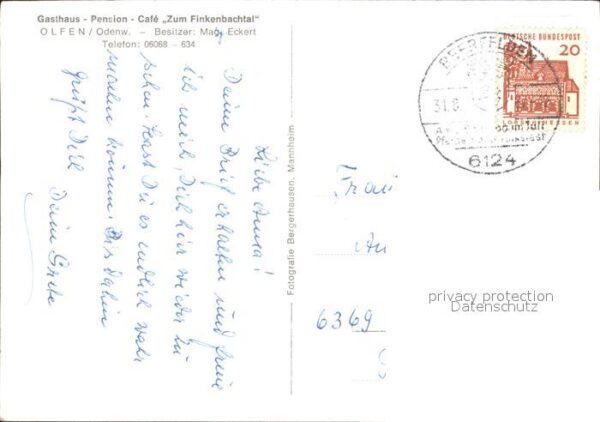 Gasthaus - Pension - Café „Zum Finkenbachtal"
OLFEN / Odenw. - Besitzer: Marg. Eckert
Telefon: 06068 - 634
Liebe Anna!
Deinen Brief erhalten und freue
ich mich, Dich hier wieder zu
sehen. Hast Du es endlich wahr
machen können. Bis dahin
grüßt Dich Deine Grete
Fotografie Bergerhausen, Mannheim
BEERFELDEN
31.8
6124
DEUTSCHE BUNDESPOST
20
LORSCH/HESSEN
Frau
An
6369
privacy protection
Datenschutz